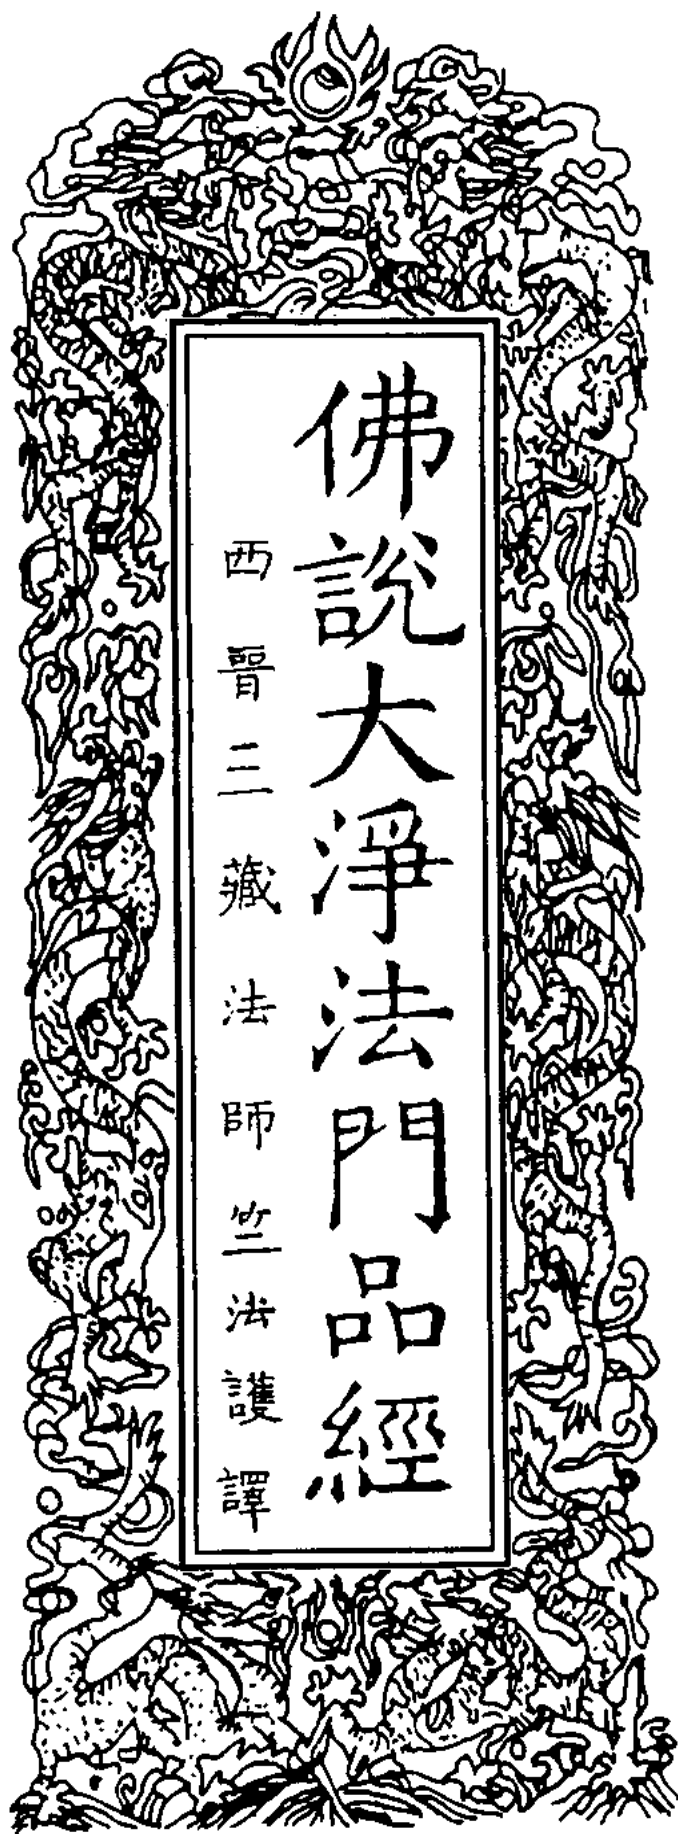 佛說大淨法門品經
西晉三藏法師竺法護譯